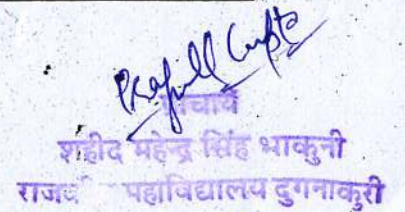 Prafull Gupta
प्राचार्य
शहीद महेन्द्र सिंह धाकुनी
महाविद्यालय दुगनाकुरी